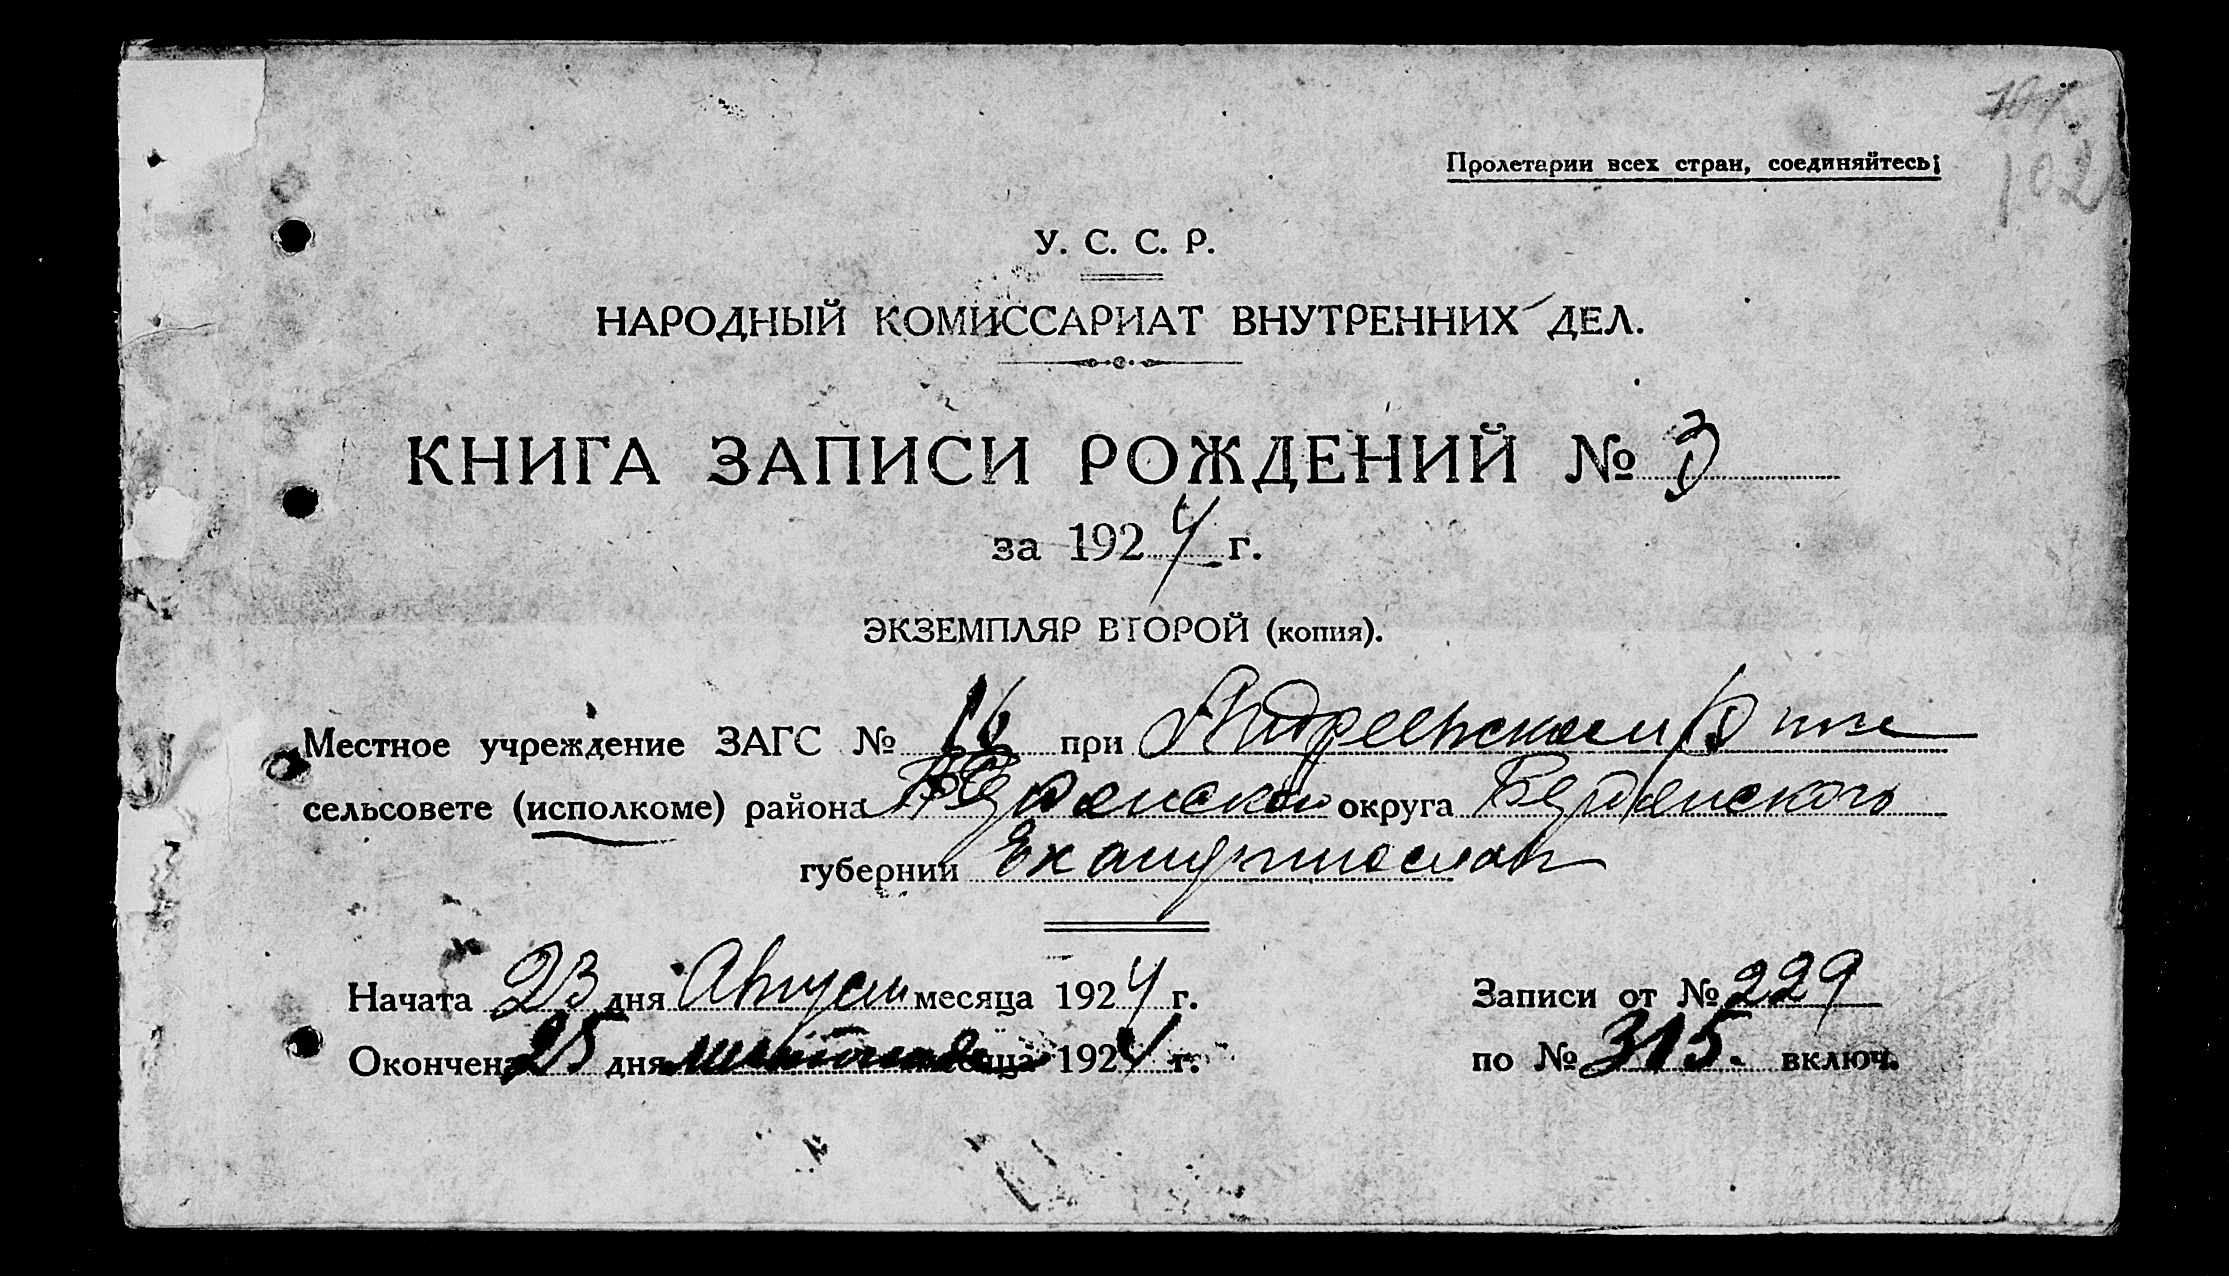 102
Пролетарии всех стран, соединяйтесь!
У. С. С. Р.
НАРОДНЫЙ КОМИССАРИАТ ВНУТРЕННИХ ДЕЛ.
КНИГА ЗАПИСИ РОЖДЕНИЙ № 3
за 1924 г.
ЭКЗЕМПЛЯР ВТОРОЙ (копия).
Местное учреждение ЗАГС № 16 при Андреевском
сельсовете (исполкоме) района округа Бердянского
губернии Екатеринослав
Начата 23 дня Август месяца 1924 г.
Записи от № 229
Окончена 25 дня месяца 1924 г.
по № 315. включ.